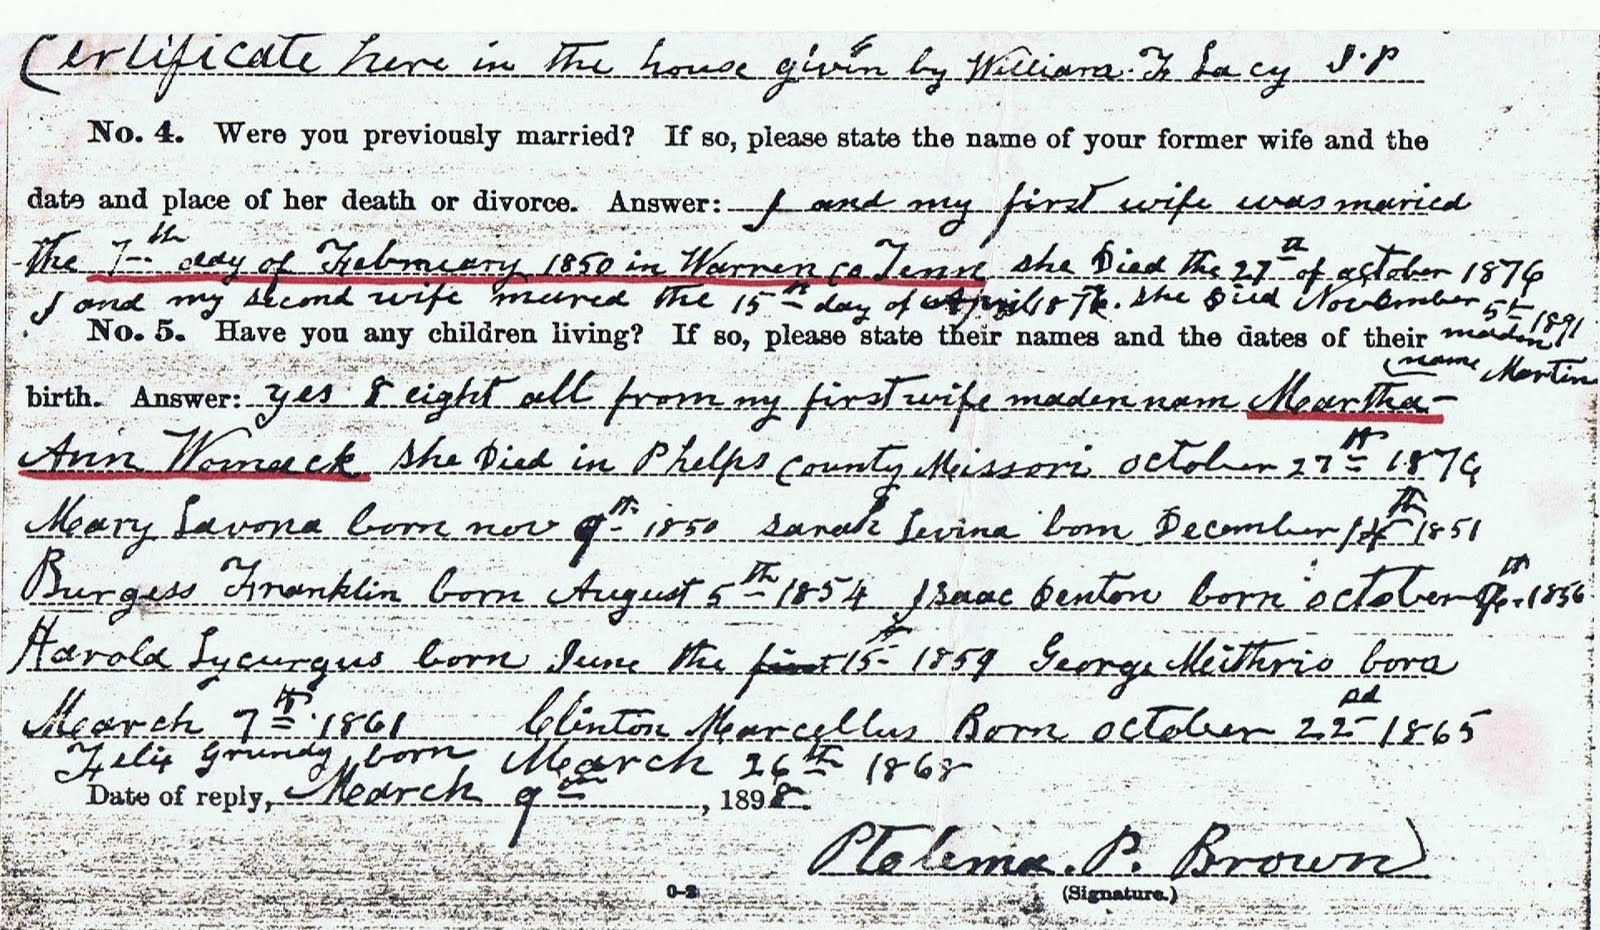 Certificate here in the house given by William F Lacy J.P
No. 4. Were you previously married? If so, please state the name of your former wife and the
date and place of her death or divorce. Answer: I and my first wife was maried
the 7th day of February 1850 in Warren Co Tenn she Died the 27th of october 1876
I and my second wife mured the 15th day of she Died November 5th 1891
No. 5. Have you any children living? If so, please state their names and the dates of their maden
name Martin
birth. Answer: yes 8 eight all from my first wife maden nam Martha
Ann Womack she Died in Phelps county Missori october 27th 1876
Mary Lavona born nov 9th 1850 Sarah Levina born December 1851
Burgess Franklin born August 5th 1854 Isaac Denton born october 1856
Harold Lycurgus born June the first 15th 1859 George born
March 7th 1861 Clinton Marcellus Born october 22nd 1865
Felix Grundy born March 26th 1868
Date of reply, March 9th, 1898.
Ptolema. P. Brown
(Signature.)
0-2